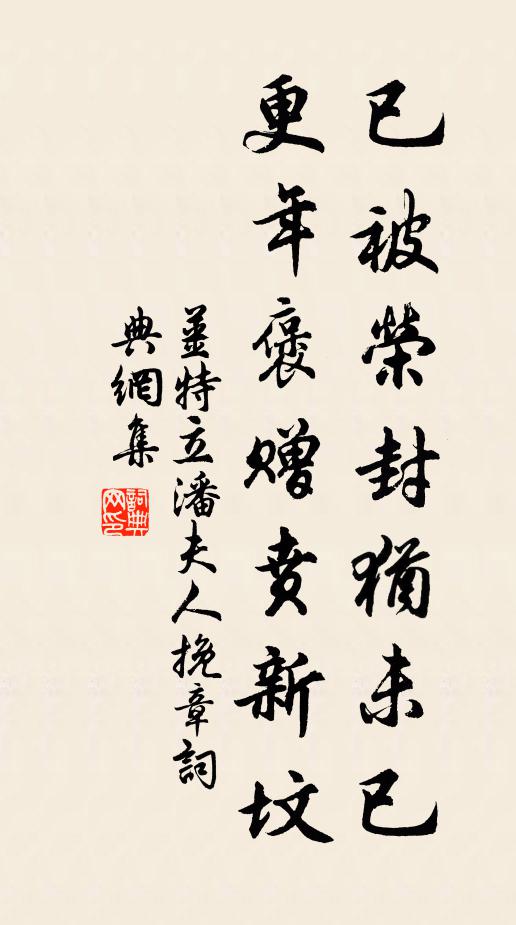 已被榮封猶未已
更年褒贈賁新墳
姜特立潘夫人挽章詞
典網集
詞典網印